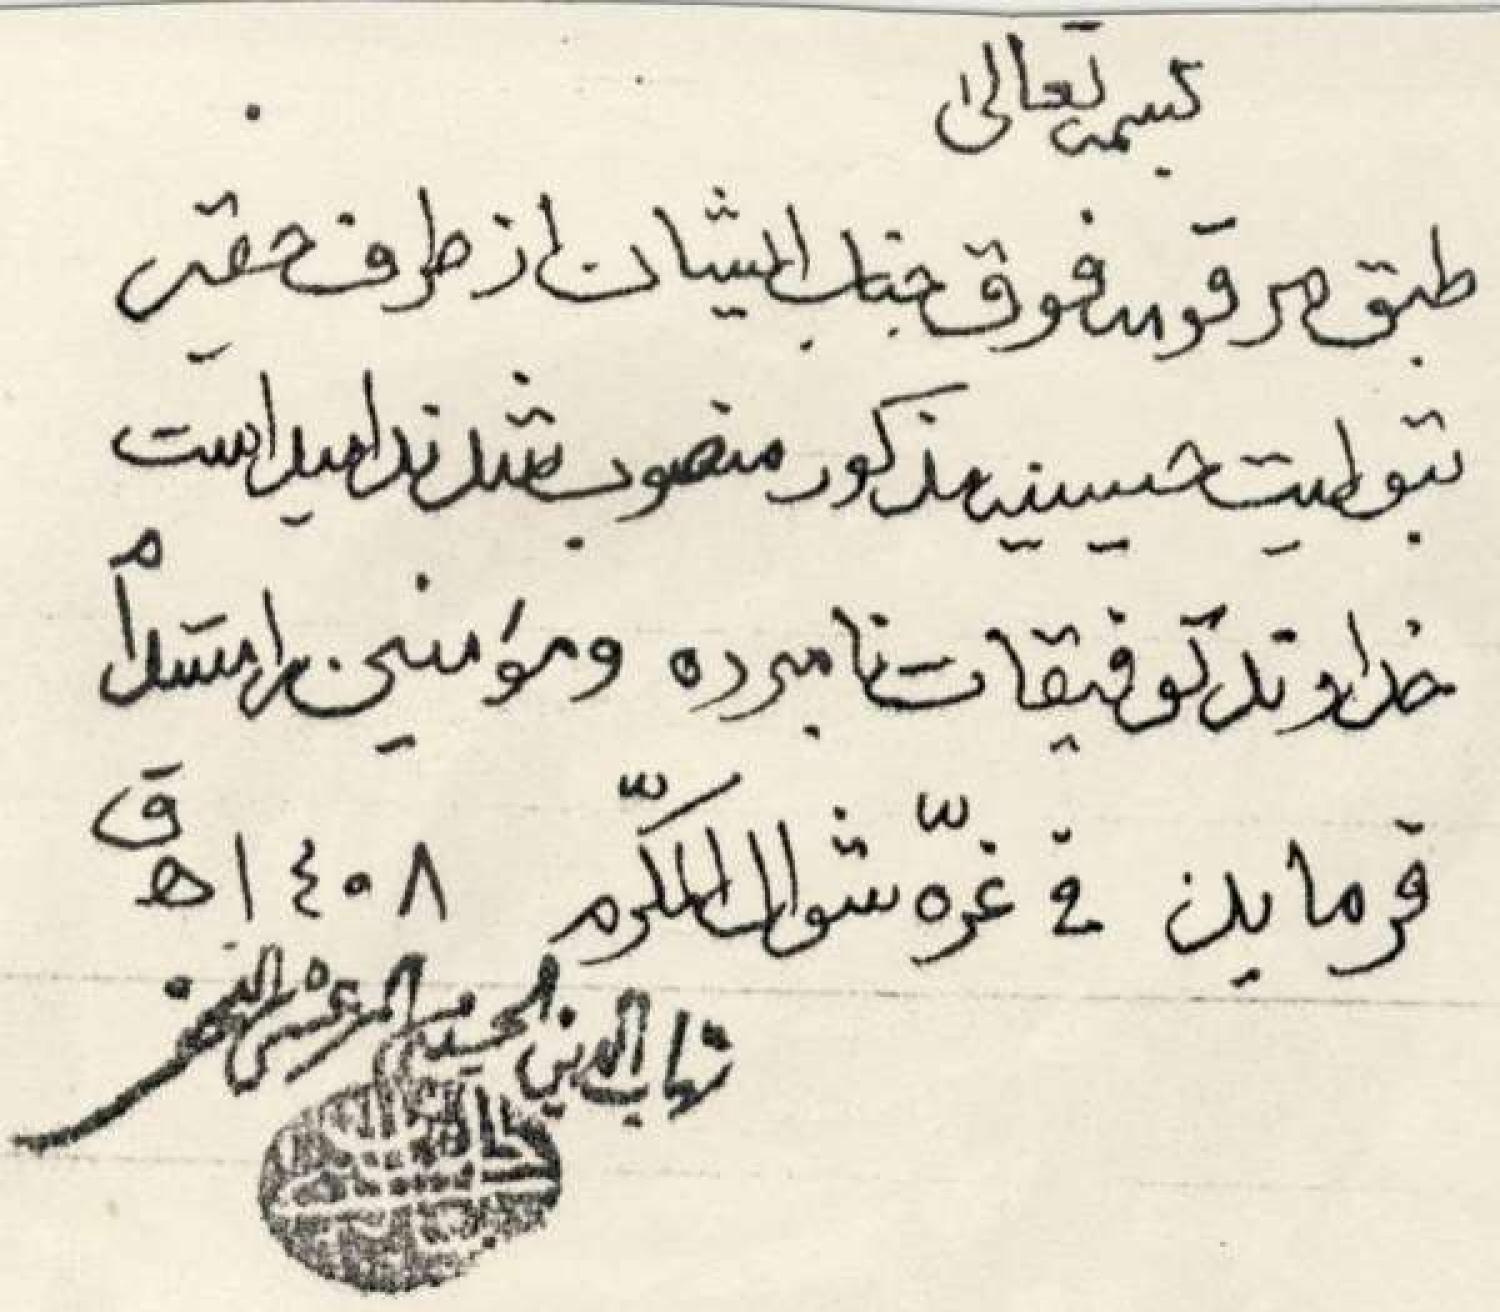 بسمه تعالی
طبق مرقومه فوق جناب ایشان از طرف حقیر
بتولیت حسینیه مذکور منصوب شدند امید است
خداوند توفیقات نامبرده و مؤمنین را مستدام
فرماید فی غرّه شوال المکرّم ۱۴۰۸ ه ق
شهاب الدین الحسینی المرعشی النجفی